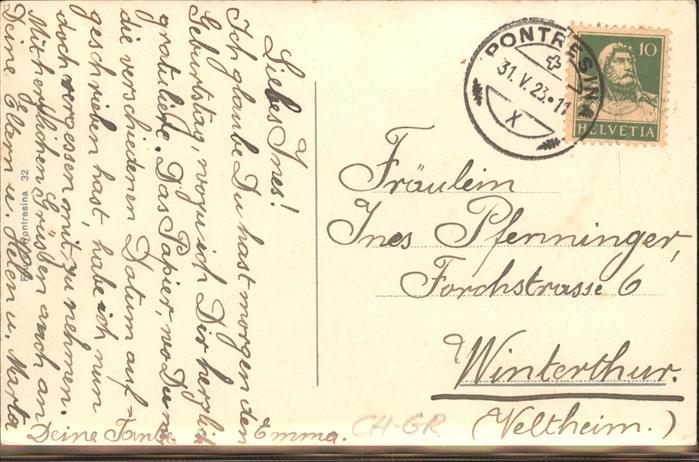 Liebes Ines!
Ich glaube Du hast morgen den
Geburtstag, wozu ich Dir herzlich
gratuliere. Das Papier, wo Du mir
die verschiedenen Datum auf-
geschrieben hast, habe ich nun
doch vergessen mitzunehmen.
Mit herzlichen Grüssen auch an
Deine Eltern u. Helen u. Marta
Deine Tante Emma.
Pontresina 32
PONTRESINA
31.V.23.11
X
10
HELVETIA
Fräulein
Ines Pfenninger,
Forchstrasse 6
Winterthur.
(Veltheim.)
CH-GR